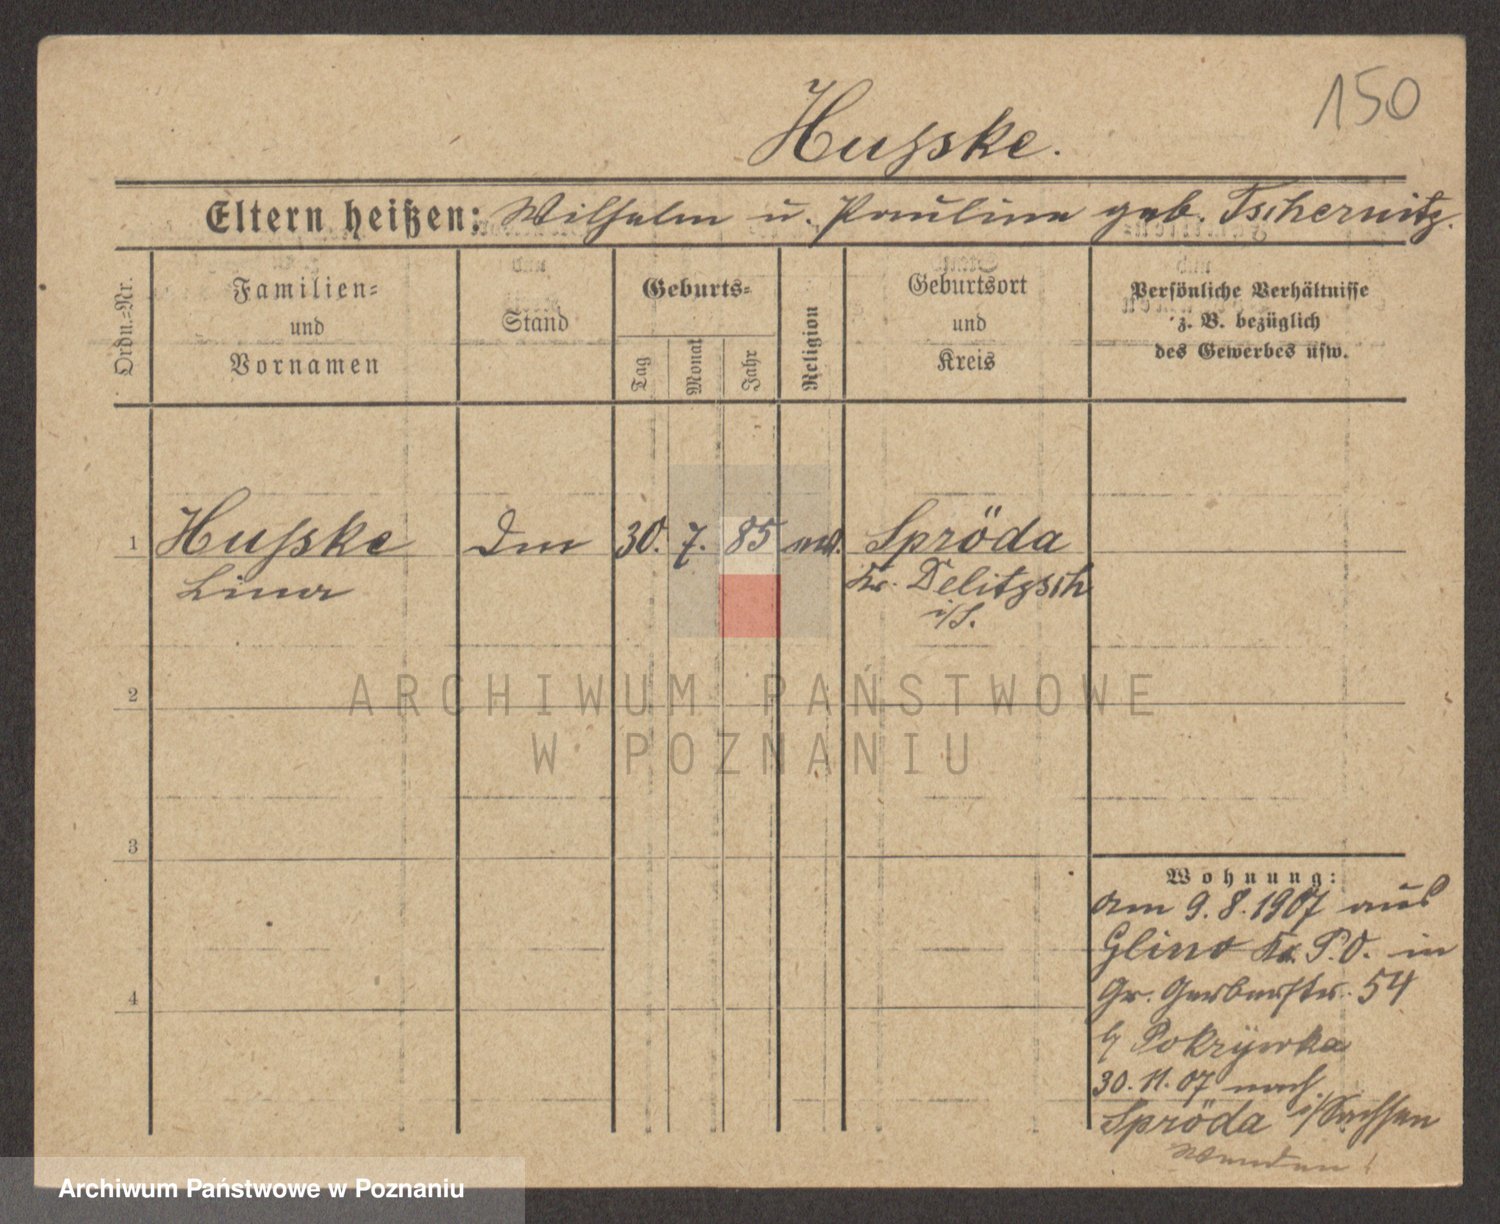 150
Hußske.
Eltern heißen: Wilhelm u. Pauline geb. Tschernitz.
Ordn.-Nr.
Familien-
und
Vornamen
Stand
Geburts-
Tag
Monat
Jahr
Religion
Geburtsort
und
Kreis
Persönliche Verhältnisse
z. B. bezüglich
des Gewerbes usw.
1 Hußske 30. 7. 85 Spröda
Lina Kr. Delitzsch
i/S.
2
3
4
Wohnung:
am 9. 8. 1907 aus
Glino Kr. P.O. in
Gr. Gerberstr. 54
b/ Pokrywka
30. 11. 07 nach
Spröda i/Sachsen
Wenden!
ARCHIWUM PAŃSTWOWE
W POZNANIU
Archiwum Państwowe w Poznaniu